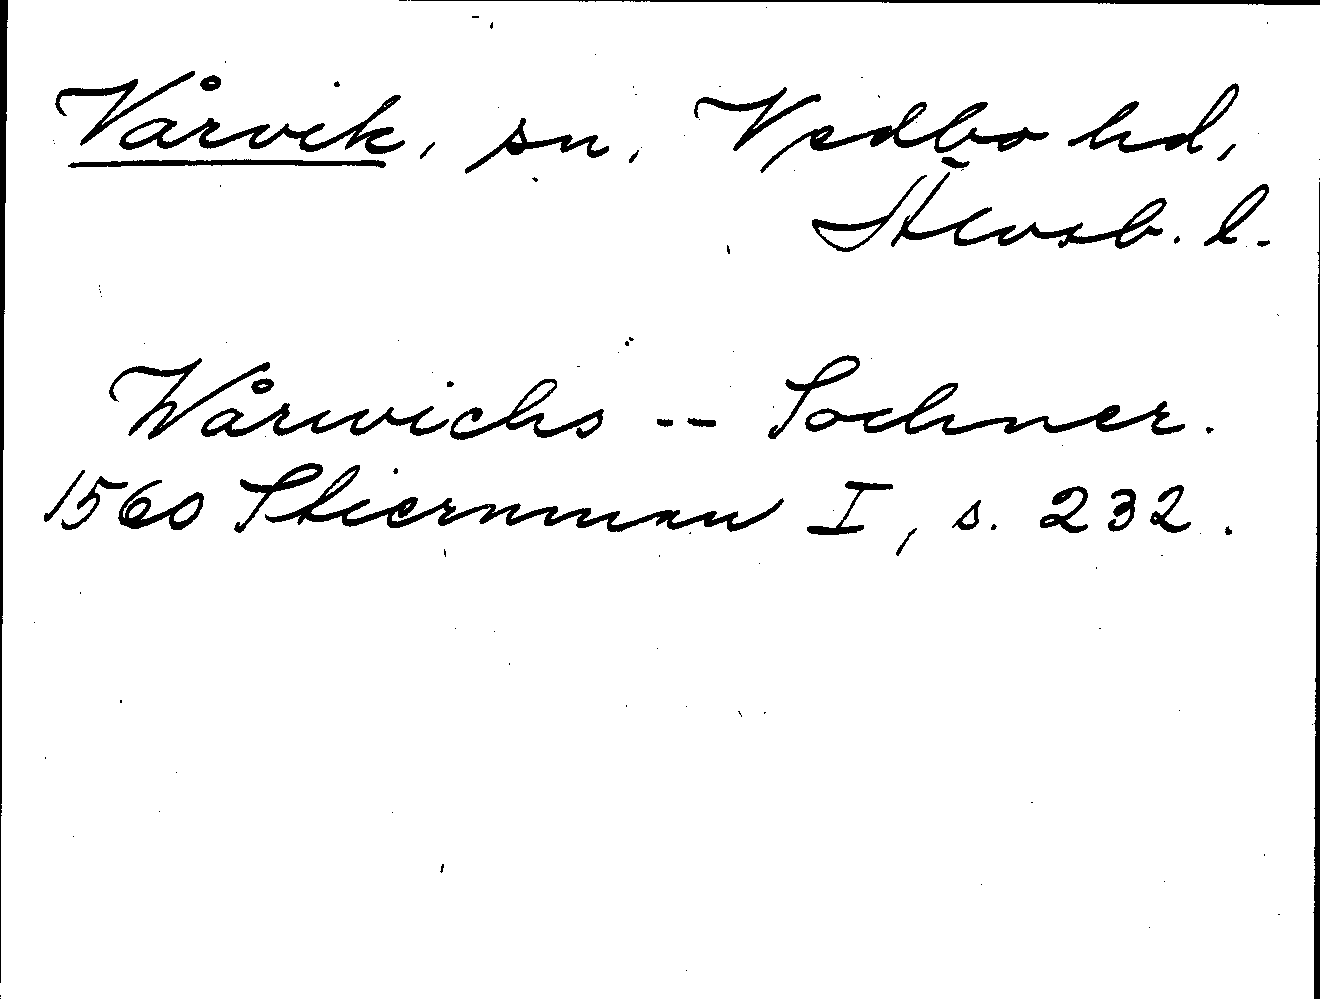 Vårvik, sn, Vedbo hd,
Älvsb. l.
Wårwichs -- Sochner.
1560 Stiernman I, s. 232.